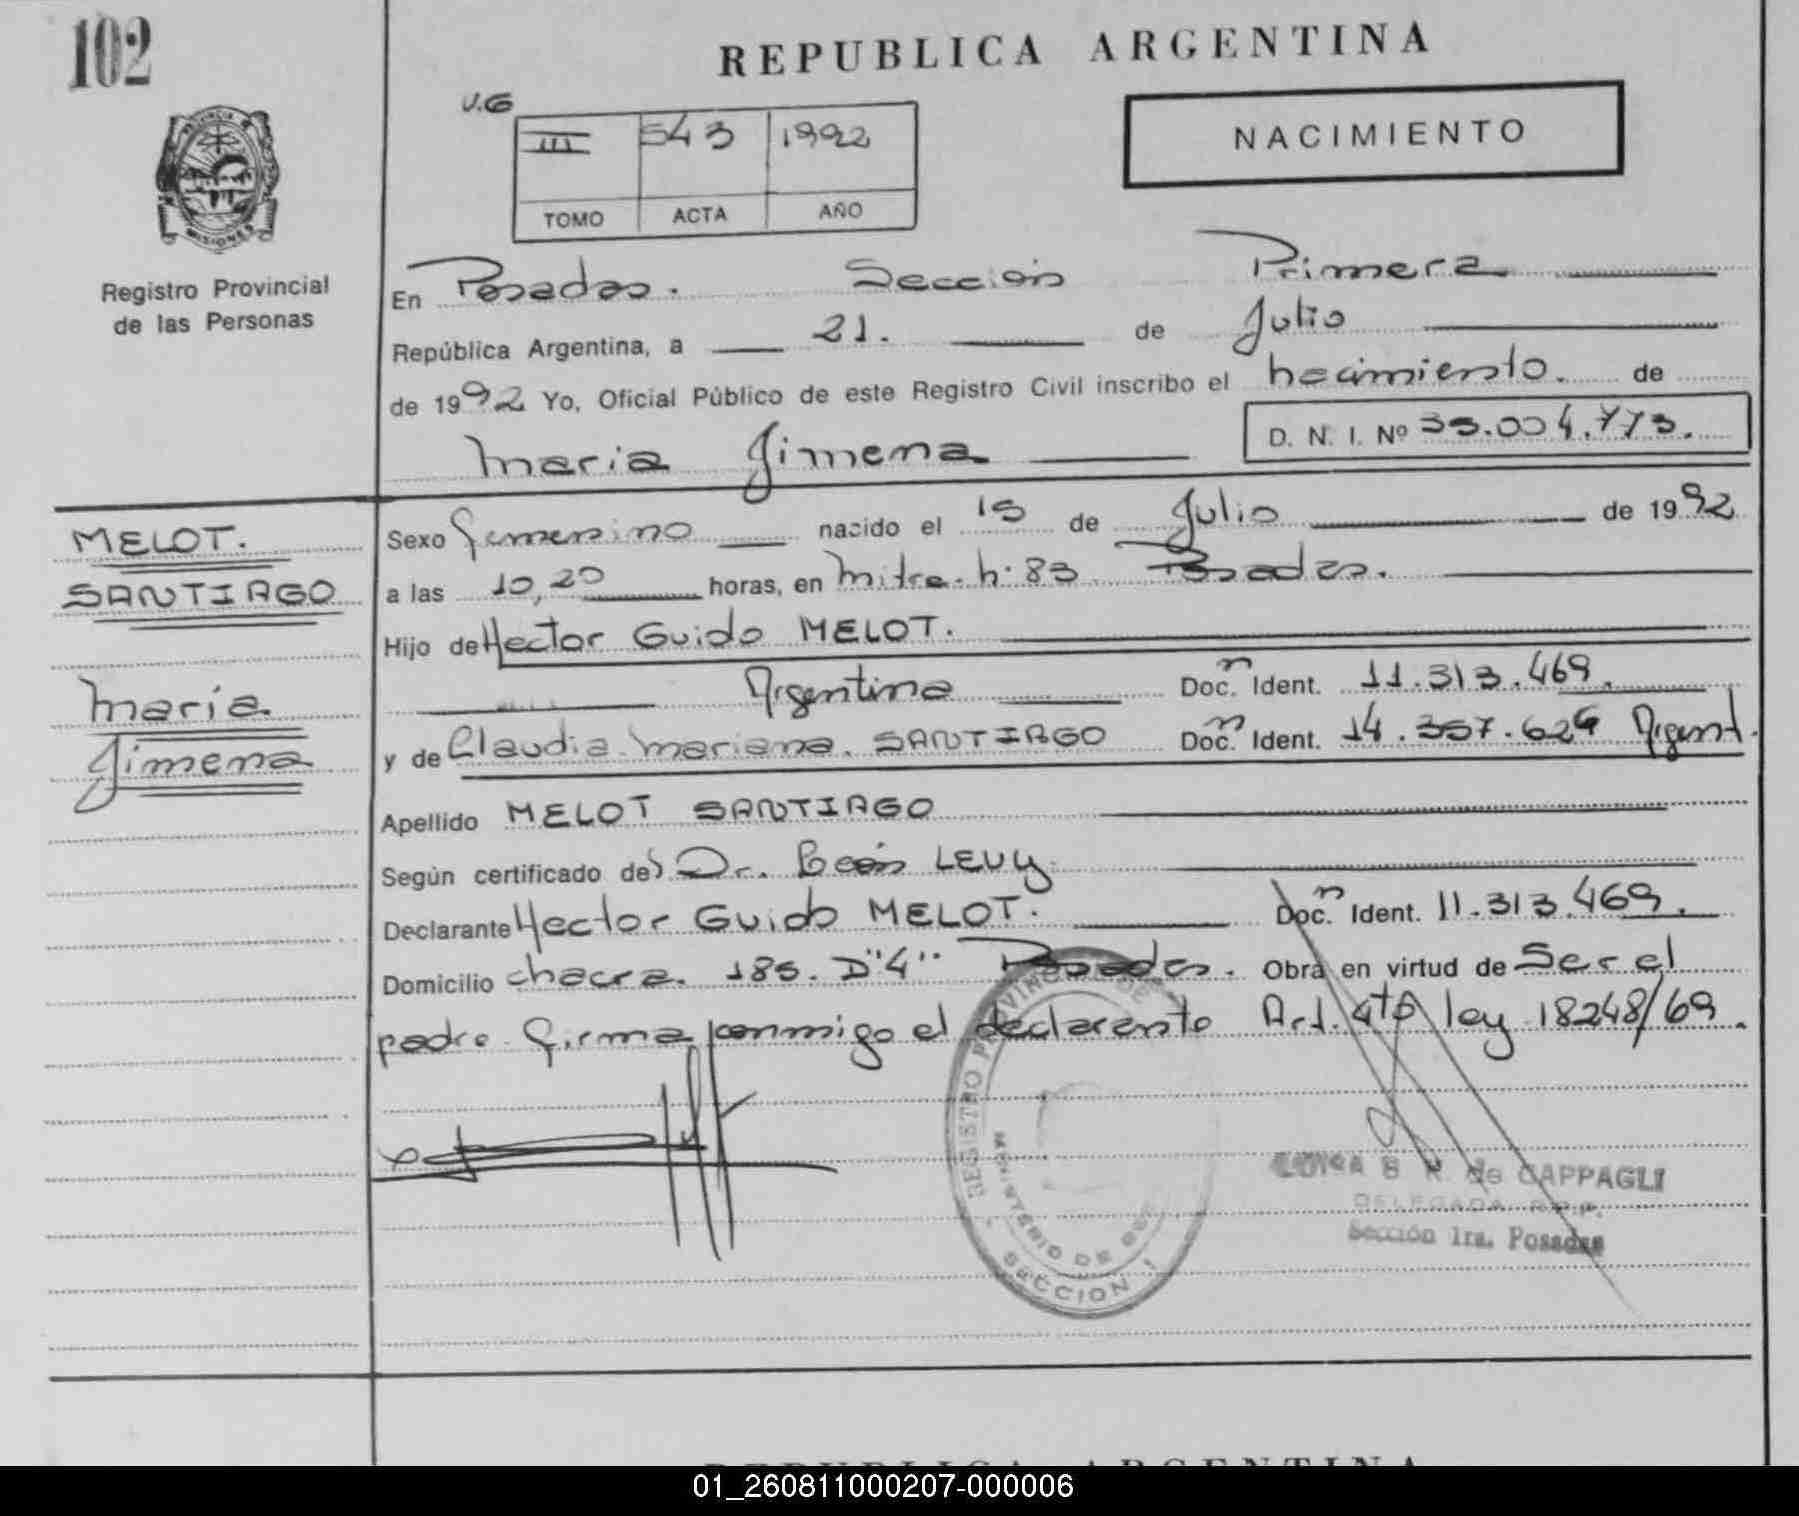 102
REPUBLICA ARGENTINA
U.G
III 543 1992
TOMO ACTA AÑO
NACIMIENTO
PROVINCIA DE
MISIONES
Registro Provincial
de las Personas
En Posadas. Sección Primera
República Argentina, a 21. de Julio
de 1992 Yo, Oficial Público de este Registro Civil inscribo el nacimiento. de
Maria Jimena
D. N. I. Nº
MELOT.
SANTIAGO
Maria
Jimena
Sexo femenino nacido el de Julio de 1992
a las 10,20 horas, en Mitre. h. 83 Posadas.
Hijo de Hector Guido MELOT.
Argentina Doc.n Ident. 11.313.469.
y de Claudia Mariana. SANTIAGO Doc.n Ident. 14.357.626 Argent.
Apellido MELOT SANTIAGO
Según certificado de) Dr. León LEVY.
Declarante Hector Guido MELOT. Doc.n Ident. 11.313.469.
Domicilio chacra. 185. D"4" Posadas. Obra en virtud de Ser el
padre firma conmigo el declarante Art. 4to ley 18248/69.
REGISTRO PROVINCIAL DE
MINISTERIO DE
SECCION 1
LUISA B R. de CAPPAGLI
DELEGADA R.P.P.
Sección 1ra. Posadas
REPUBLICA ARGENTINA
01_260811000207-000006